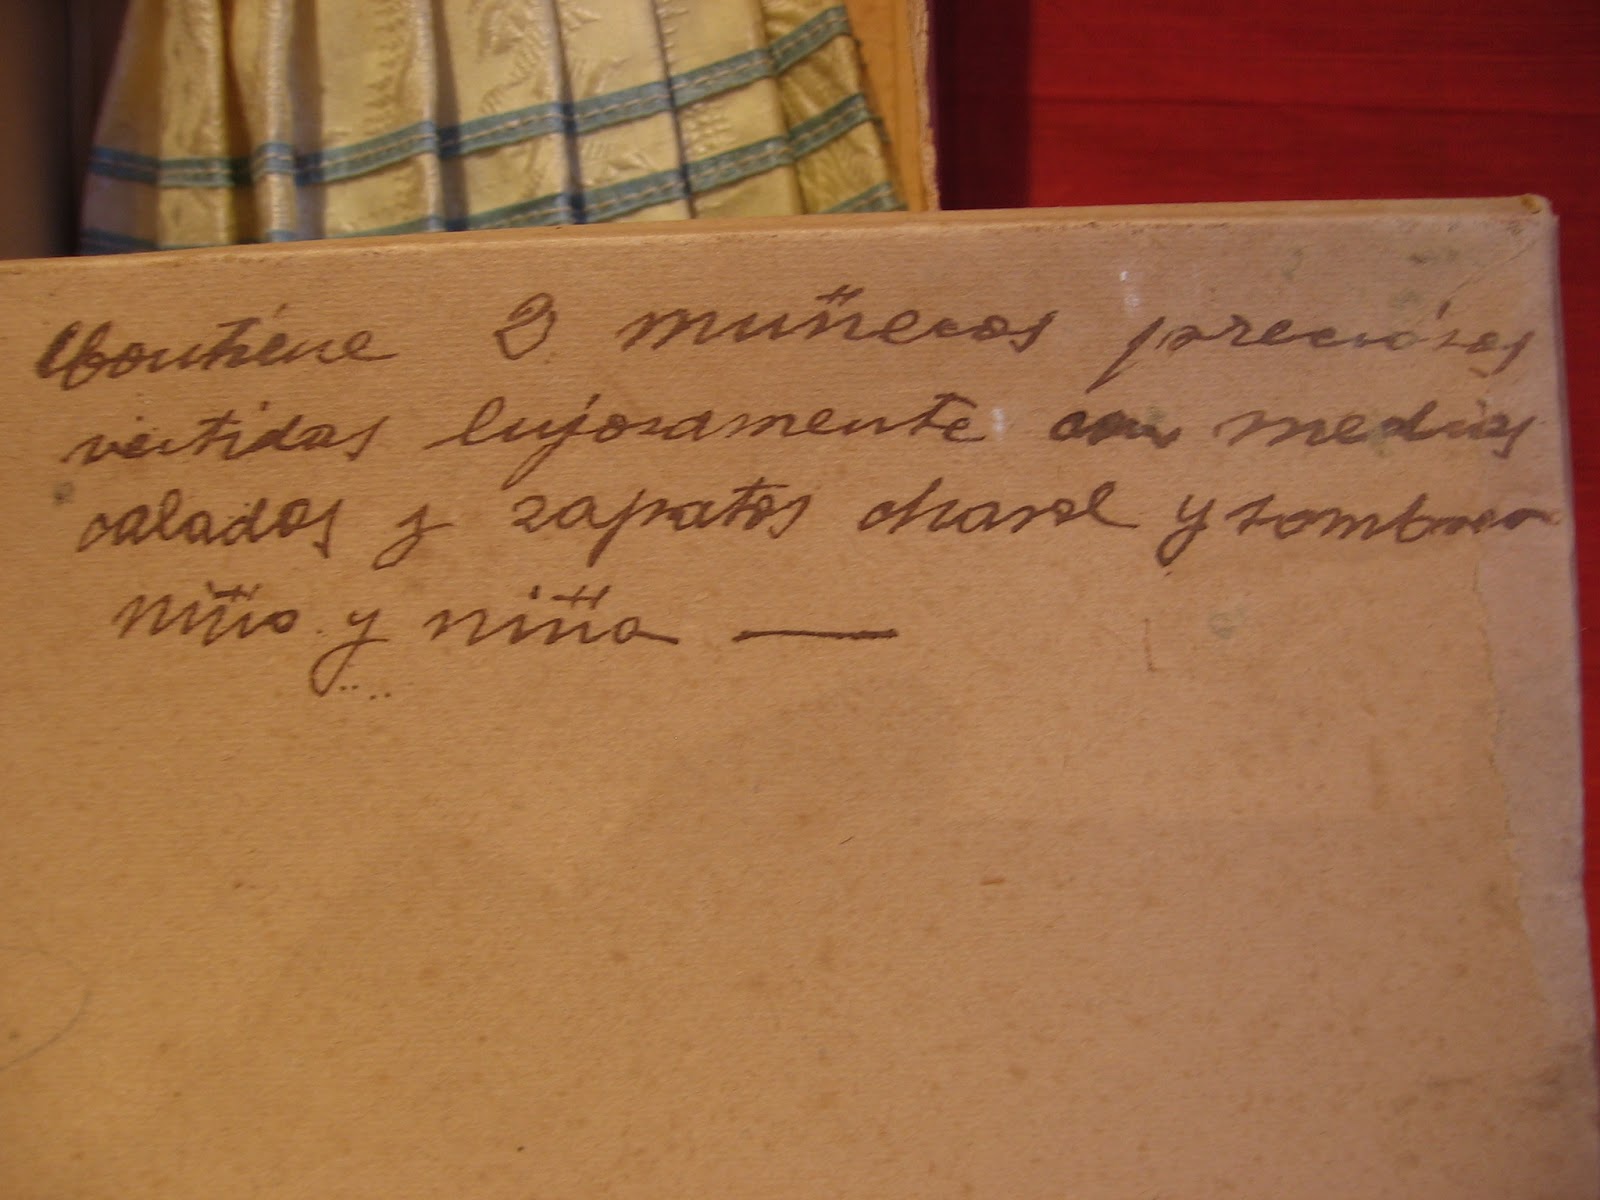 Contiene 2 muñecos preciosos
vestidos lujosamente con medias
calados y zapatos charol y sombrero
niño y niña —